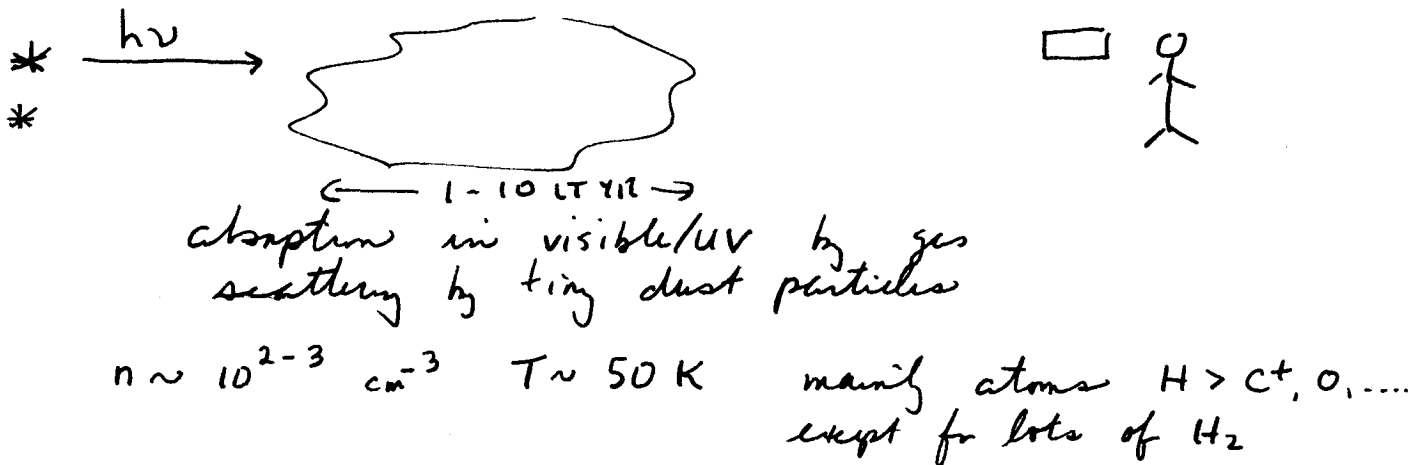 hν
1-10 LT YR
absorption in visible/UV by gas
scattering by tiny dust particles
n ~ 10^2-3 cm^-3 T ~ 50 K mainly atoms H > C^+, O, ....
except for lots of H_2